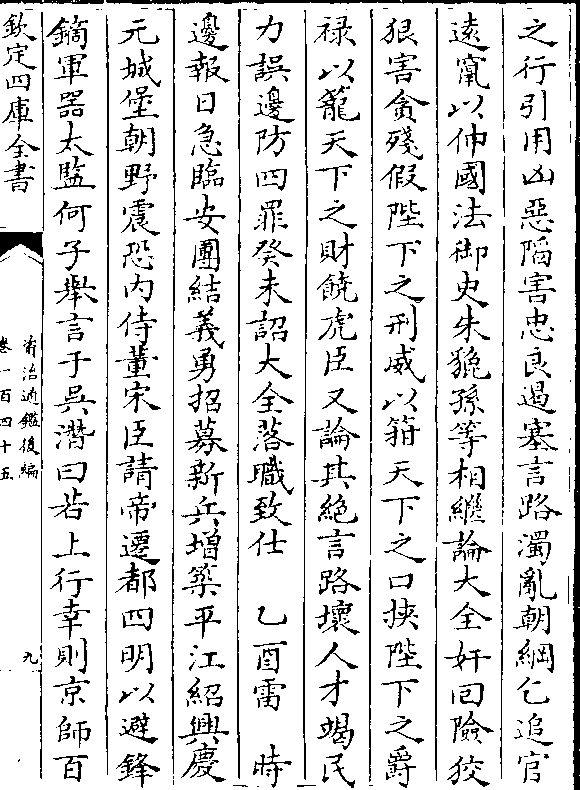 之行引用凶惡陷害忠良遏塞言路濁亂朝綱乞追官
遠竄以伸國法御史朱貔孫等相繼論大全奸回險狡
狠害貪殘假陛下之刑威以箝天下之口挾陛下之爵
禄以籠天下之財饒虎臣又論其絶言路壞人才竭民
力誤邊防四罪癸未詔大全落職致仕 乙酉雷 時
邊報日急臨安團結義勇招募新兵增築平江紹興慶
元城堡朝野震恐内侍董宋臣請帝遷都四明以避鋒
鏑軍器太監何子舉言于吳潛曰若上行幸則京師百
欽定四庫全書
資治通鑑後編
卷一百四十五
九